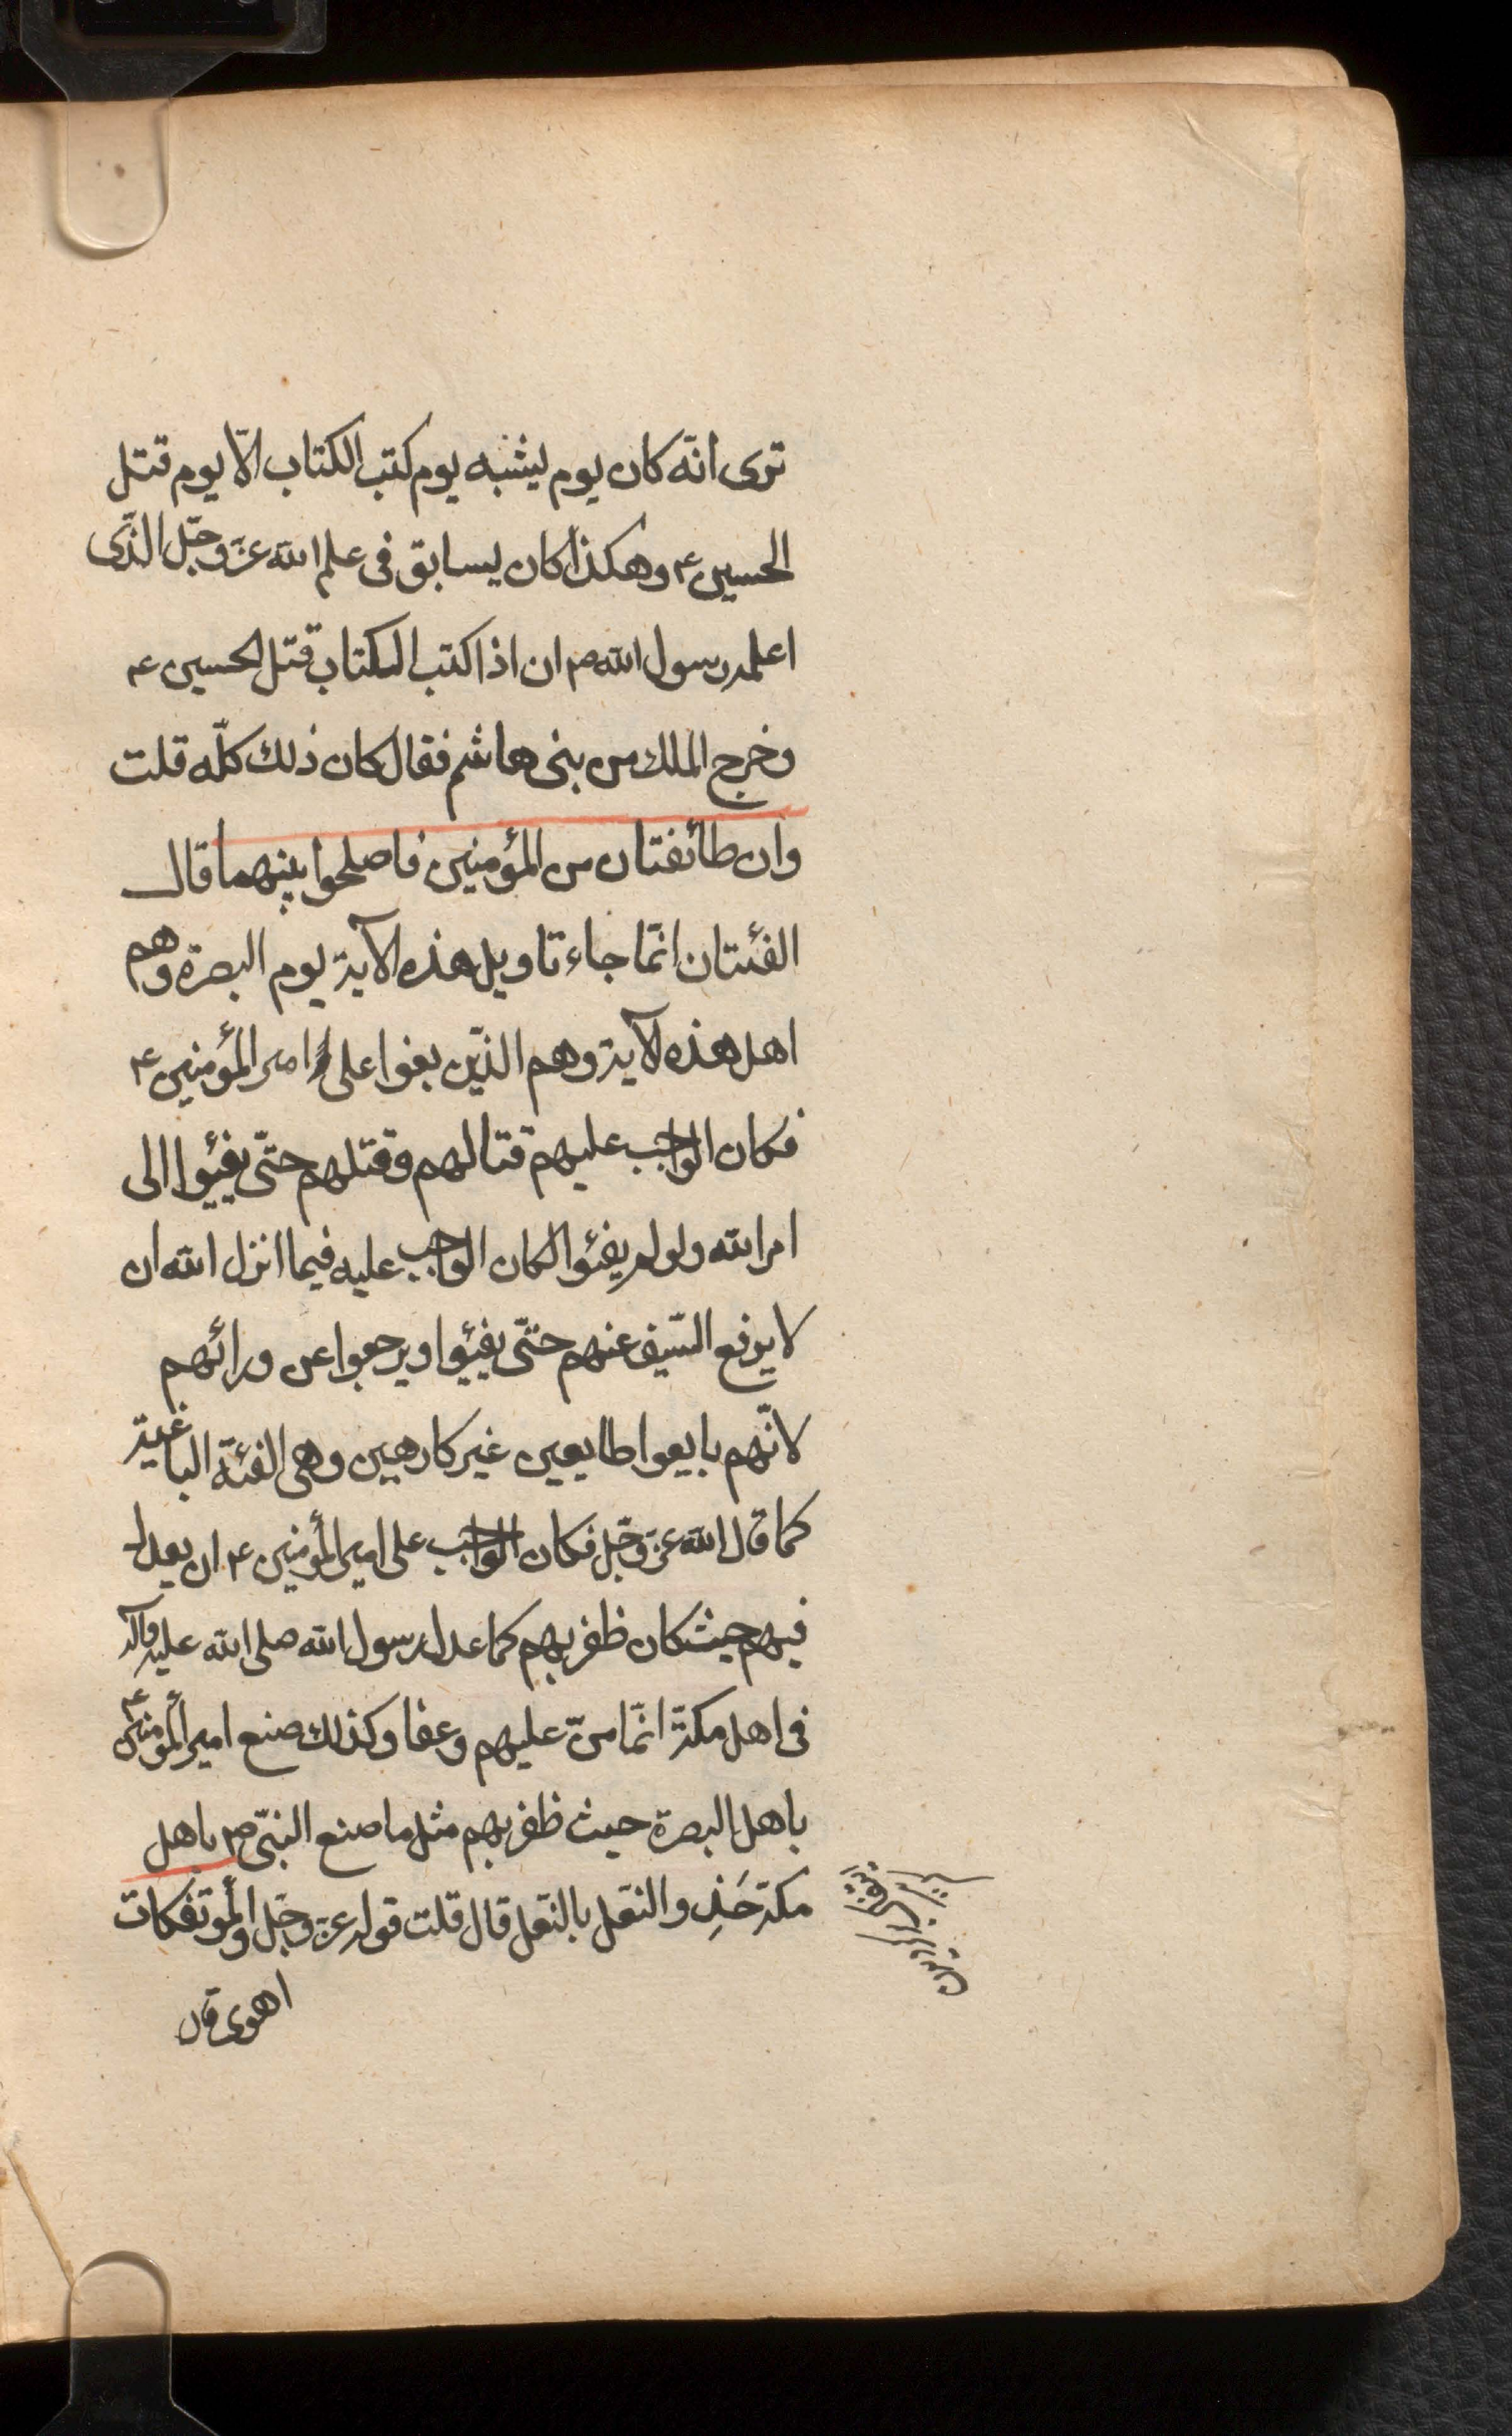 ترى انّه كان يوم يشبه يوم كتب الكتاب الّا يوم قتل
الحسين ع وهكذا كان يسابق فى علم الله عزّ وجلّ الذّى
اعلمه رسول الله ص ان اذا كتب الكتاب قتل الحسين ع
وخرج الملك من بنى هاشم فقال كان ذلك كلّه قلت
وان طائفتان من المؤمنين فاصلحوا بينهما قال
الفئتان انّما جاء تاويل هذه الآية يوم البصرة وهم
اهل هذه الآية وهم الذّين بغوا على امير المؤمنين ع
فكان الواجب عليهم قتالهم وقتلهم حتّى يفيئوا الى
امر الله ولو لم يفئوا لكان الواجب عليه فيما انزل الله ان
لا يرفع السّيف عنهم حتّى يفيئوا ويرجعوا عن ورائهم
لانّهم بايعوا طايعين غير كارهين وهى الفئة الباغية
كما قال الله عزّ وجلّ فكان الواجب على امير المؤمنين ع ان يعدل
فيهم حيث كان ظفر بهم كما عدل رسول الله صلى الله عليه وآله
فى اهل مكّة انّما منّ عليهم وعفا وكذلك صنع امير المؤمنين ع
باهل البصرة حيث ظفر بهم مثل ما صنع النبىّ ص باهل
مكّة حَذو النعل بالنعل قال قلت قوله عزّ وجلّ والمؤتفكات
اهوى قال